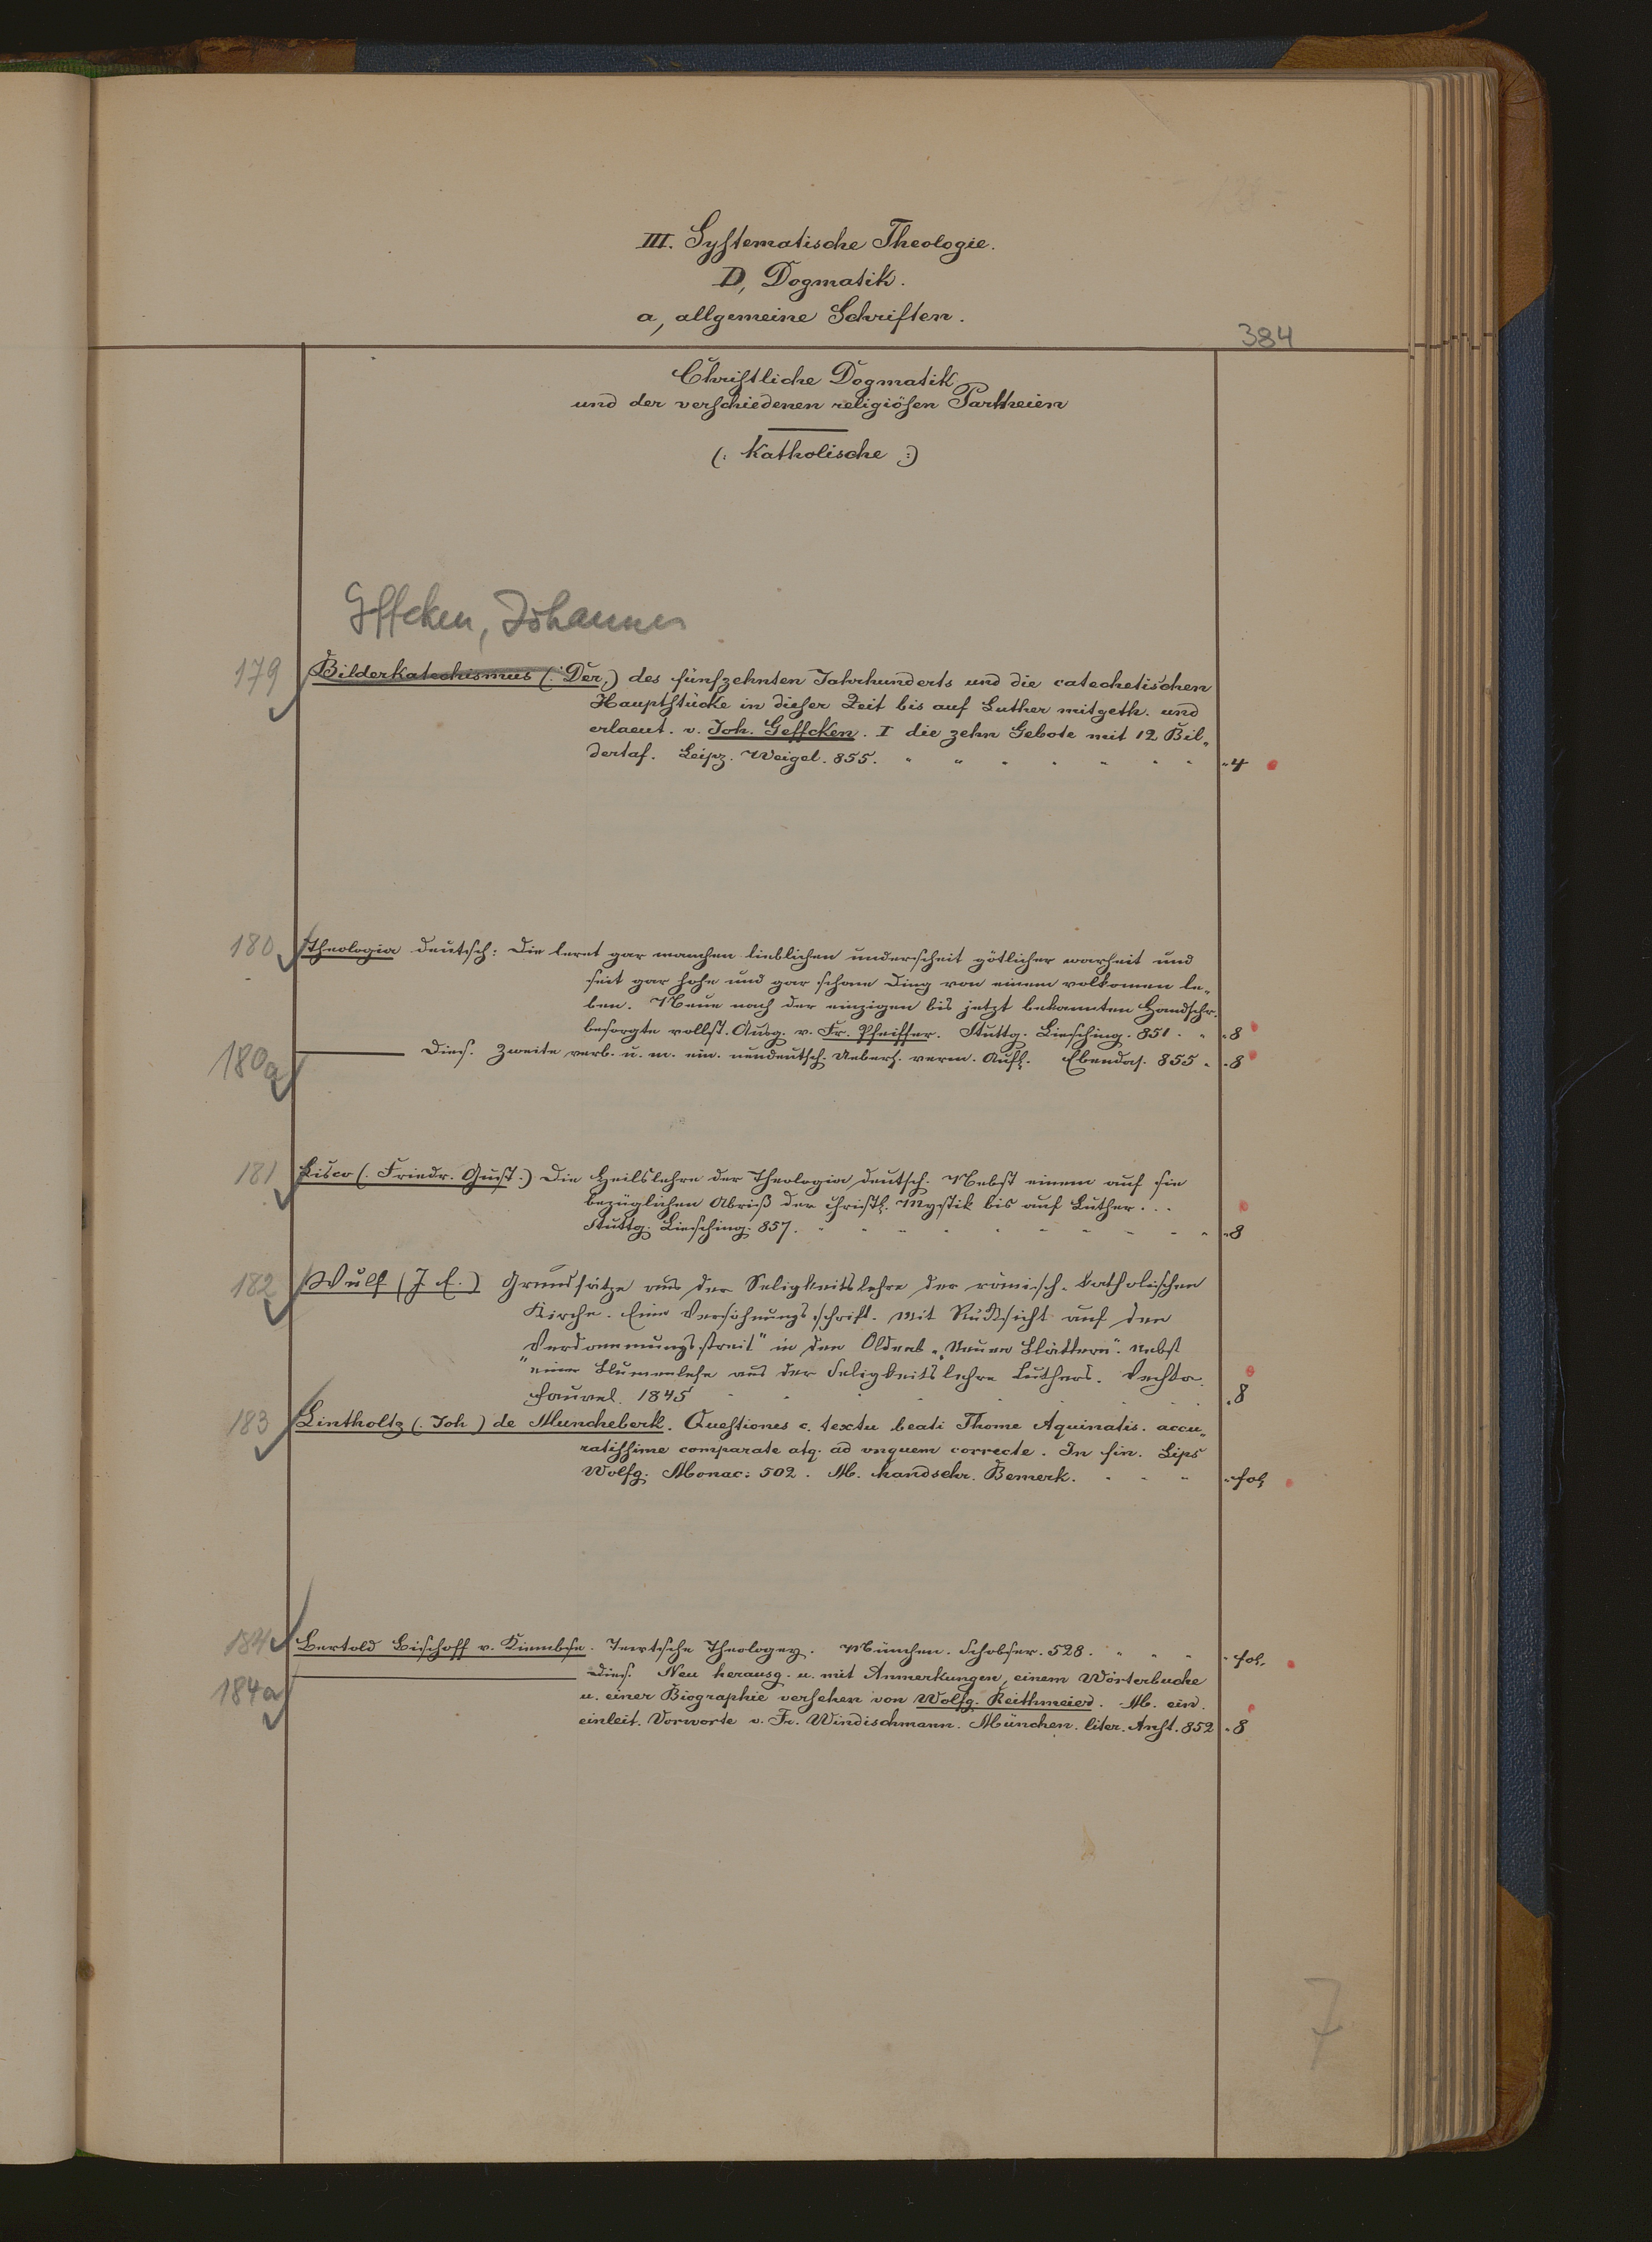 III. Systematische Theologie.
D, Dogmatik.
a, allgemeine Schriften.
384
Christliche Dogmatik
und der verschiedenen religiösen Partheien
(: Katholische :)
Geffcken, Johannes
179 Bilderkatechismus (: Der,) des fünfzehnten Jahrhunderts und die catechetischen
Hauptstücke in dieser Zeit bis auf Luther mitgeth. und
erlaeut. v. Joh. Geffcken. I die zehn Gebote mit 12 Bil„
dertaf. Leipz. Weigel. 855. „ 4
180 Theologia deutsch: Die leret gar manchen lieblichen underscheit götlicher warheit und
seit gar hohe und gar schone ding von einem volkomen le„
ben. Neue nach der einzigen bis jetzt bekannten Handschr.
besorgte vollst. Ausg. v. Fr. Pfeiffer. Stuttg. Liesching. 851. „ 8
180a ——— Dies. Zweite verb. u. m. ein. neudeutsch. Uebers. verm. Aufl. Ebendas. 855 „ 8
181 Lisco (. Friedr. Gust.) Die Heilslehre der Theologia deutsch. Nebst einem auf sie
bezüglichen Abriß der christl. Mystik bis auf Luther...
Stuttg. Liesching. 857. „ 8
182 Wulf (J. E.) Grundsätze aus der Seligkeitslehre der römisch-katholischen
Kirche. Eine Versöhnungsschrift. Mit Rücksicht auf den
Verdammungsstreit" in den Oldenb. „Neuen Blättern". Nebst
"einer Blumenlese aus der Seligkeitslehre Luthers. Vechta.
Fauvel. 1845 „ 8
183 Lintholtz (. Joh ) de Muncheberk. Questiones c. textu beati Thome Aquinatis. accu„
ratissime comparate atq. ad vnguem correcte. In fin. Lips
Wolfg. Monac: 502. M. handschr. Bemerk. „ fol.
184 Bertold Bischoff v. Kiembse. Tewtsche Theologey. München. Schobser. 528. „ fol.
184a ——— Dies. Neu herausg. u. mit Anmerkungen, einem Wörterbuche
u. einer Biographie versehen von Wolfg. Reithmeier. M. ein.
einleit. Vorworte v. Fr. Windischmann. München. liter. Anst. 852 „ 8
7